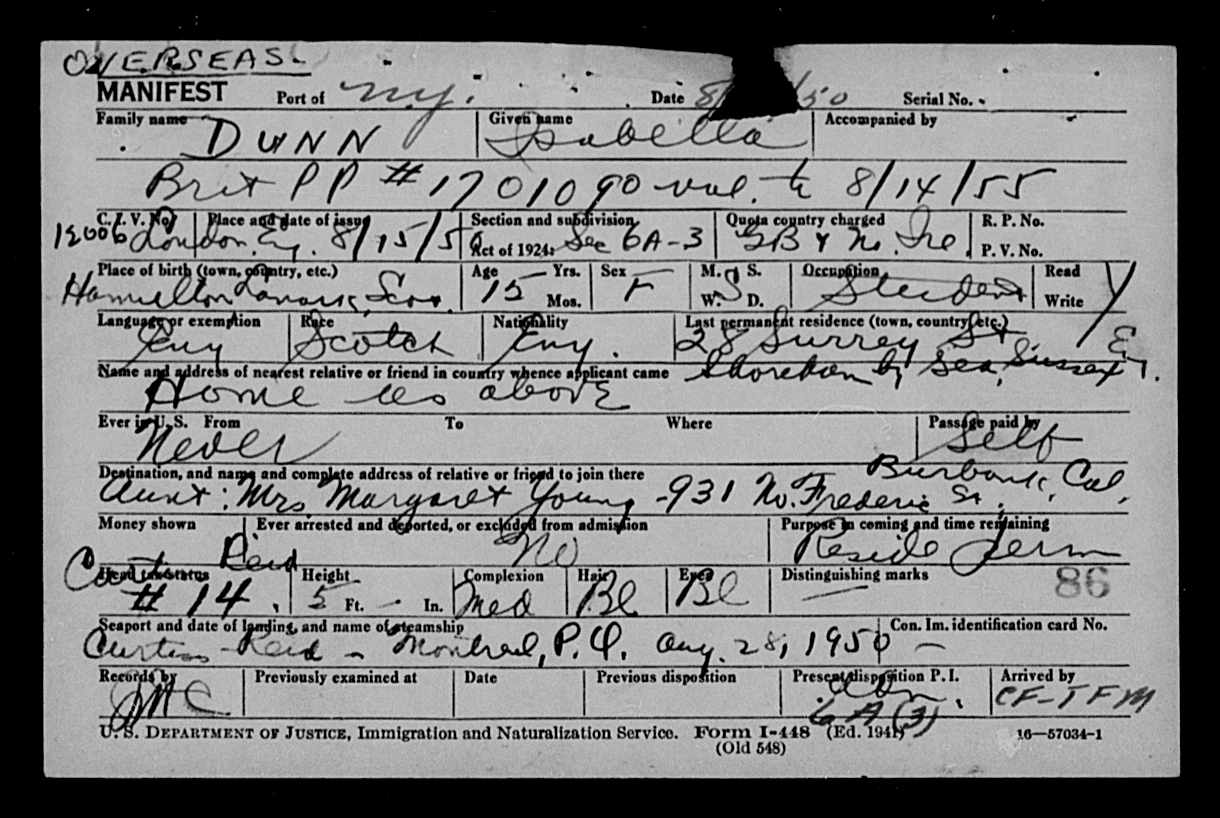 OVERSEAS.
MANIFEST Port of N.Y. Date 8/ /50 Serial No.
Family name DUNN Given name Isabella Accompanied by
Brit PP # 1701090 val. to 8/14/55
C. I. V. No. 12006 Place and date of issue London Eng. 8/15/50 Section and subdivision, Act of 1924: Sec 6A-3 Quota country charged GB & No. Ire. R. P. No. P. V. No.
Place of birth (town, country, etc.) Hamilton Lanark, Scot. Age 15 Yrs. Mos. Sex F M. S. W. D. S Occupation Student Read Write Y
Language or exemption Eng Race Scotch Nationality Eng. Last permanent residence (town, country, etc.) 28 Surrey St
Name and address of nearest relative or friend in country whence applicant came Shoreham by Sea, Sussex, E.
Home as above
Ever in U. S. From To Where Passage paid by
Never Self
Destination, and name and complete address of relative or friend to join there Burbank, Cal.
Aunt: Mrs. Margaret Young - 931 No. Frederic St.
Money shown Ever arrested and deported, or excluded from admission No Purpose in coming and time remaining Reside Perm
Head tax status # 14. Height 5 Ft. — In. Complexion Med Hair Bl Eyes Bl Distinguishing marks — 86
Seaport and date of landing, and name of steamship Con. Im. identification card No.
Curtiss-Reid - Montreal, P.Q. Aug. 28, 1950 —
Records by JMC Previously examined at Date Previous disposition Present disposition P. I. Adm. 6A(3) Arrived by CF-TFM
U. S. DEPARTMENT OF JUSTICE, Immigration and Naturalization Service. Form I-448 (Ed. 1941) 16—57034-1
(Old 548)